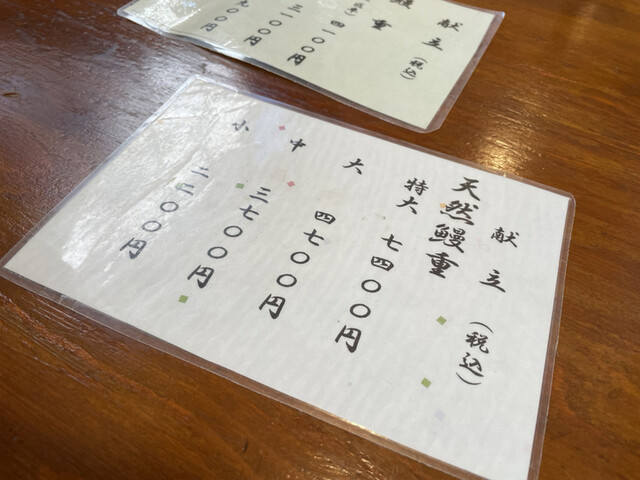 献立（税込）
重
四一〇〇円
三一〇〇円
九〇〇円
献立（税込）
天然鰻重
特大 七四〇〇円
大 四七〇〇円
中 三七〇〇円
小 二二〇〇円